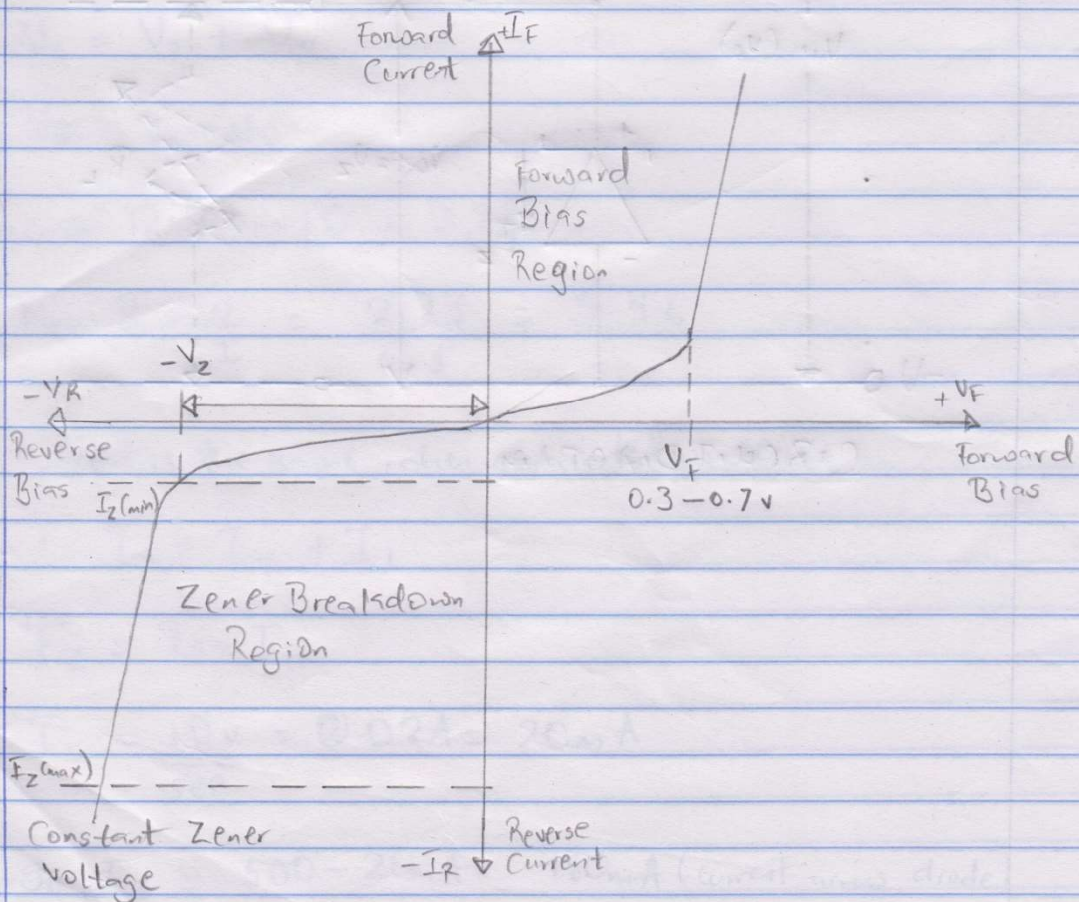 Forward
Current
+IF
Forward
Bias
Region
-Vz
-VR
+VF
Reverse
Bias
Iz(min)
VF
0.3-0.7v
Forward
Bias
Zener Breakdown
Region
Iz(max)
Constant Zener
Voltage
Reverse
Current
-IR